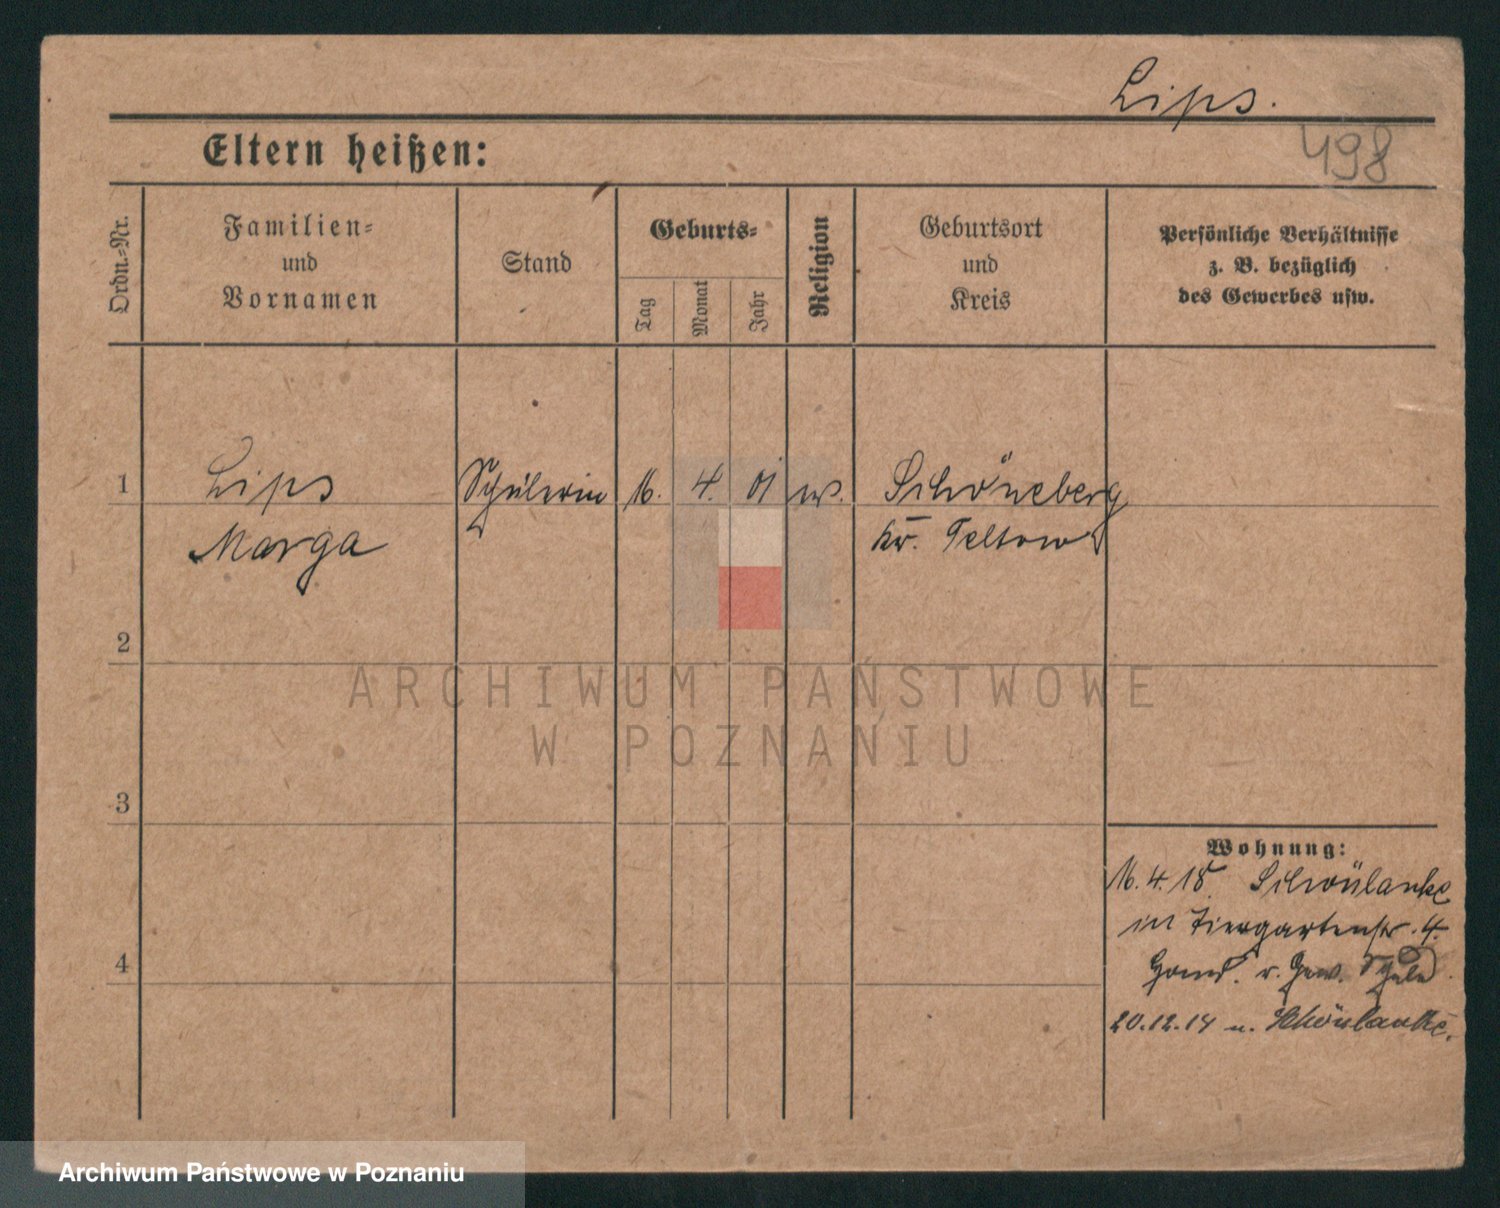 Lips.
498
Eltern heißen:
Ordn.-Nr.
Familien-
und
Vornamen
Stand
Geburts-
Tag
Monat
Jahr
Religion
Geburtsort
und
Kreis
Persönliche Verhältnisse
z. B. bezüglich
des Gewerbes usw.
1 Lips Schülerin 16. 4. 01 Schöneberg
Marga Kr. Teltow
2
ARCHIWUM PAŃSTWOWE
W POZNANIU
3
Wohnung:
16. 4. 18 Schönlanke
in Tiergartenstr. 4.
4
20.12.19 n. Schönlanke.
Archiwum Państwowe w Poznaniu